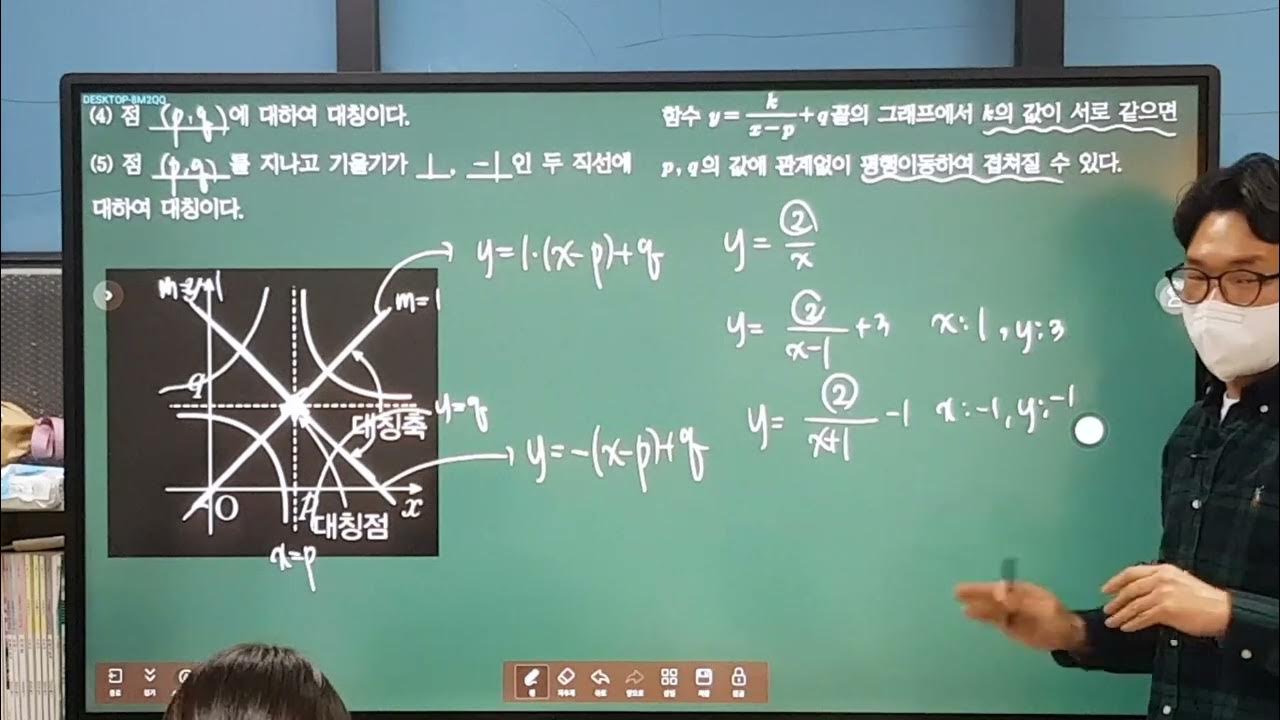 DESKTOP-8M2QQ
(4) 점 (p, q)에 대하여 대칭이다.
(5) 점 (p, q)를 지나고 기울기가 1, -1인 두 직선에
대하여 대칭이다.
함수 y = k/(x-p) + q 꼴의 그래프에서 k의 값이 서로 같으면
p, q의 값에 관계없이 평행이동하여 겹쳐질 수 있다.
m=1
q
y=q
대칭축
O
p
x
대칭점
x=p
y=1·(x-p)+q
y=-(x-p)+q
y = 2/x
y = 2/(x-1) +3 x:1, y:3
y = 2/(x+1) -1 x:-1, y:-1
펜
지우개